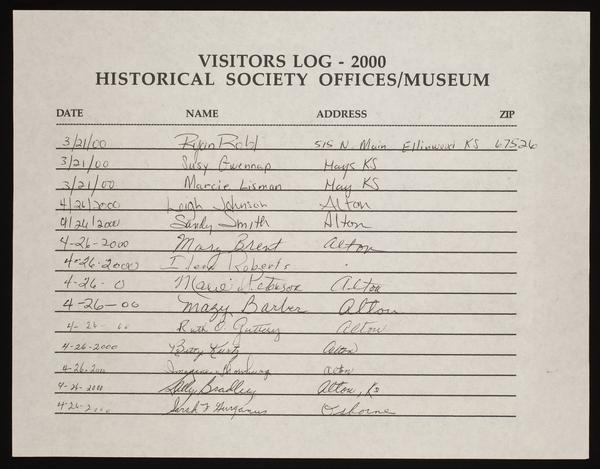 VISITORS LOG - 2000
HISTORICAL SOCIETY OFFICES/MUSEUM
DATE NAME ADDRESS ZIP
3/21/00 515 N. Main Ellinwood KS 67526
3/21/00 Susy Gwennap Hays KS
3/21/00 Marcie Lisman Hay KS
4/26/2000 Leigh Johnson Alton
4/26/2000 Sandy Smith Alton
4-26-2000 Mary Brent Alton
4-26-2000 Ilene Roberts
4-26-0 Marie Peterson Alton
4-26-00 Mary Barber Alton
4-26-00 Ruth C. Guttery Alton
4-26-2000 Betty Kurtz Alton
4-26-2000 Imogene Alton
4-26-2000 Bradley Alton, Ks
4-26-2000 Sarah F Gurganus Osborne